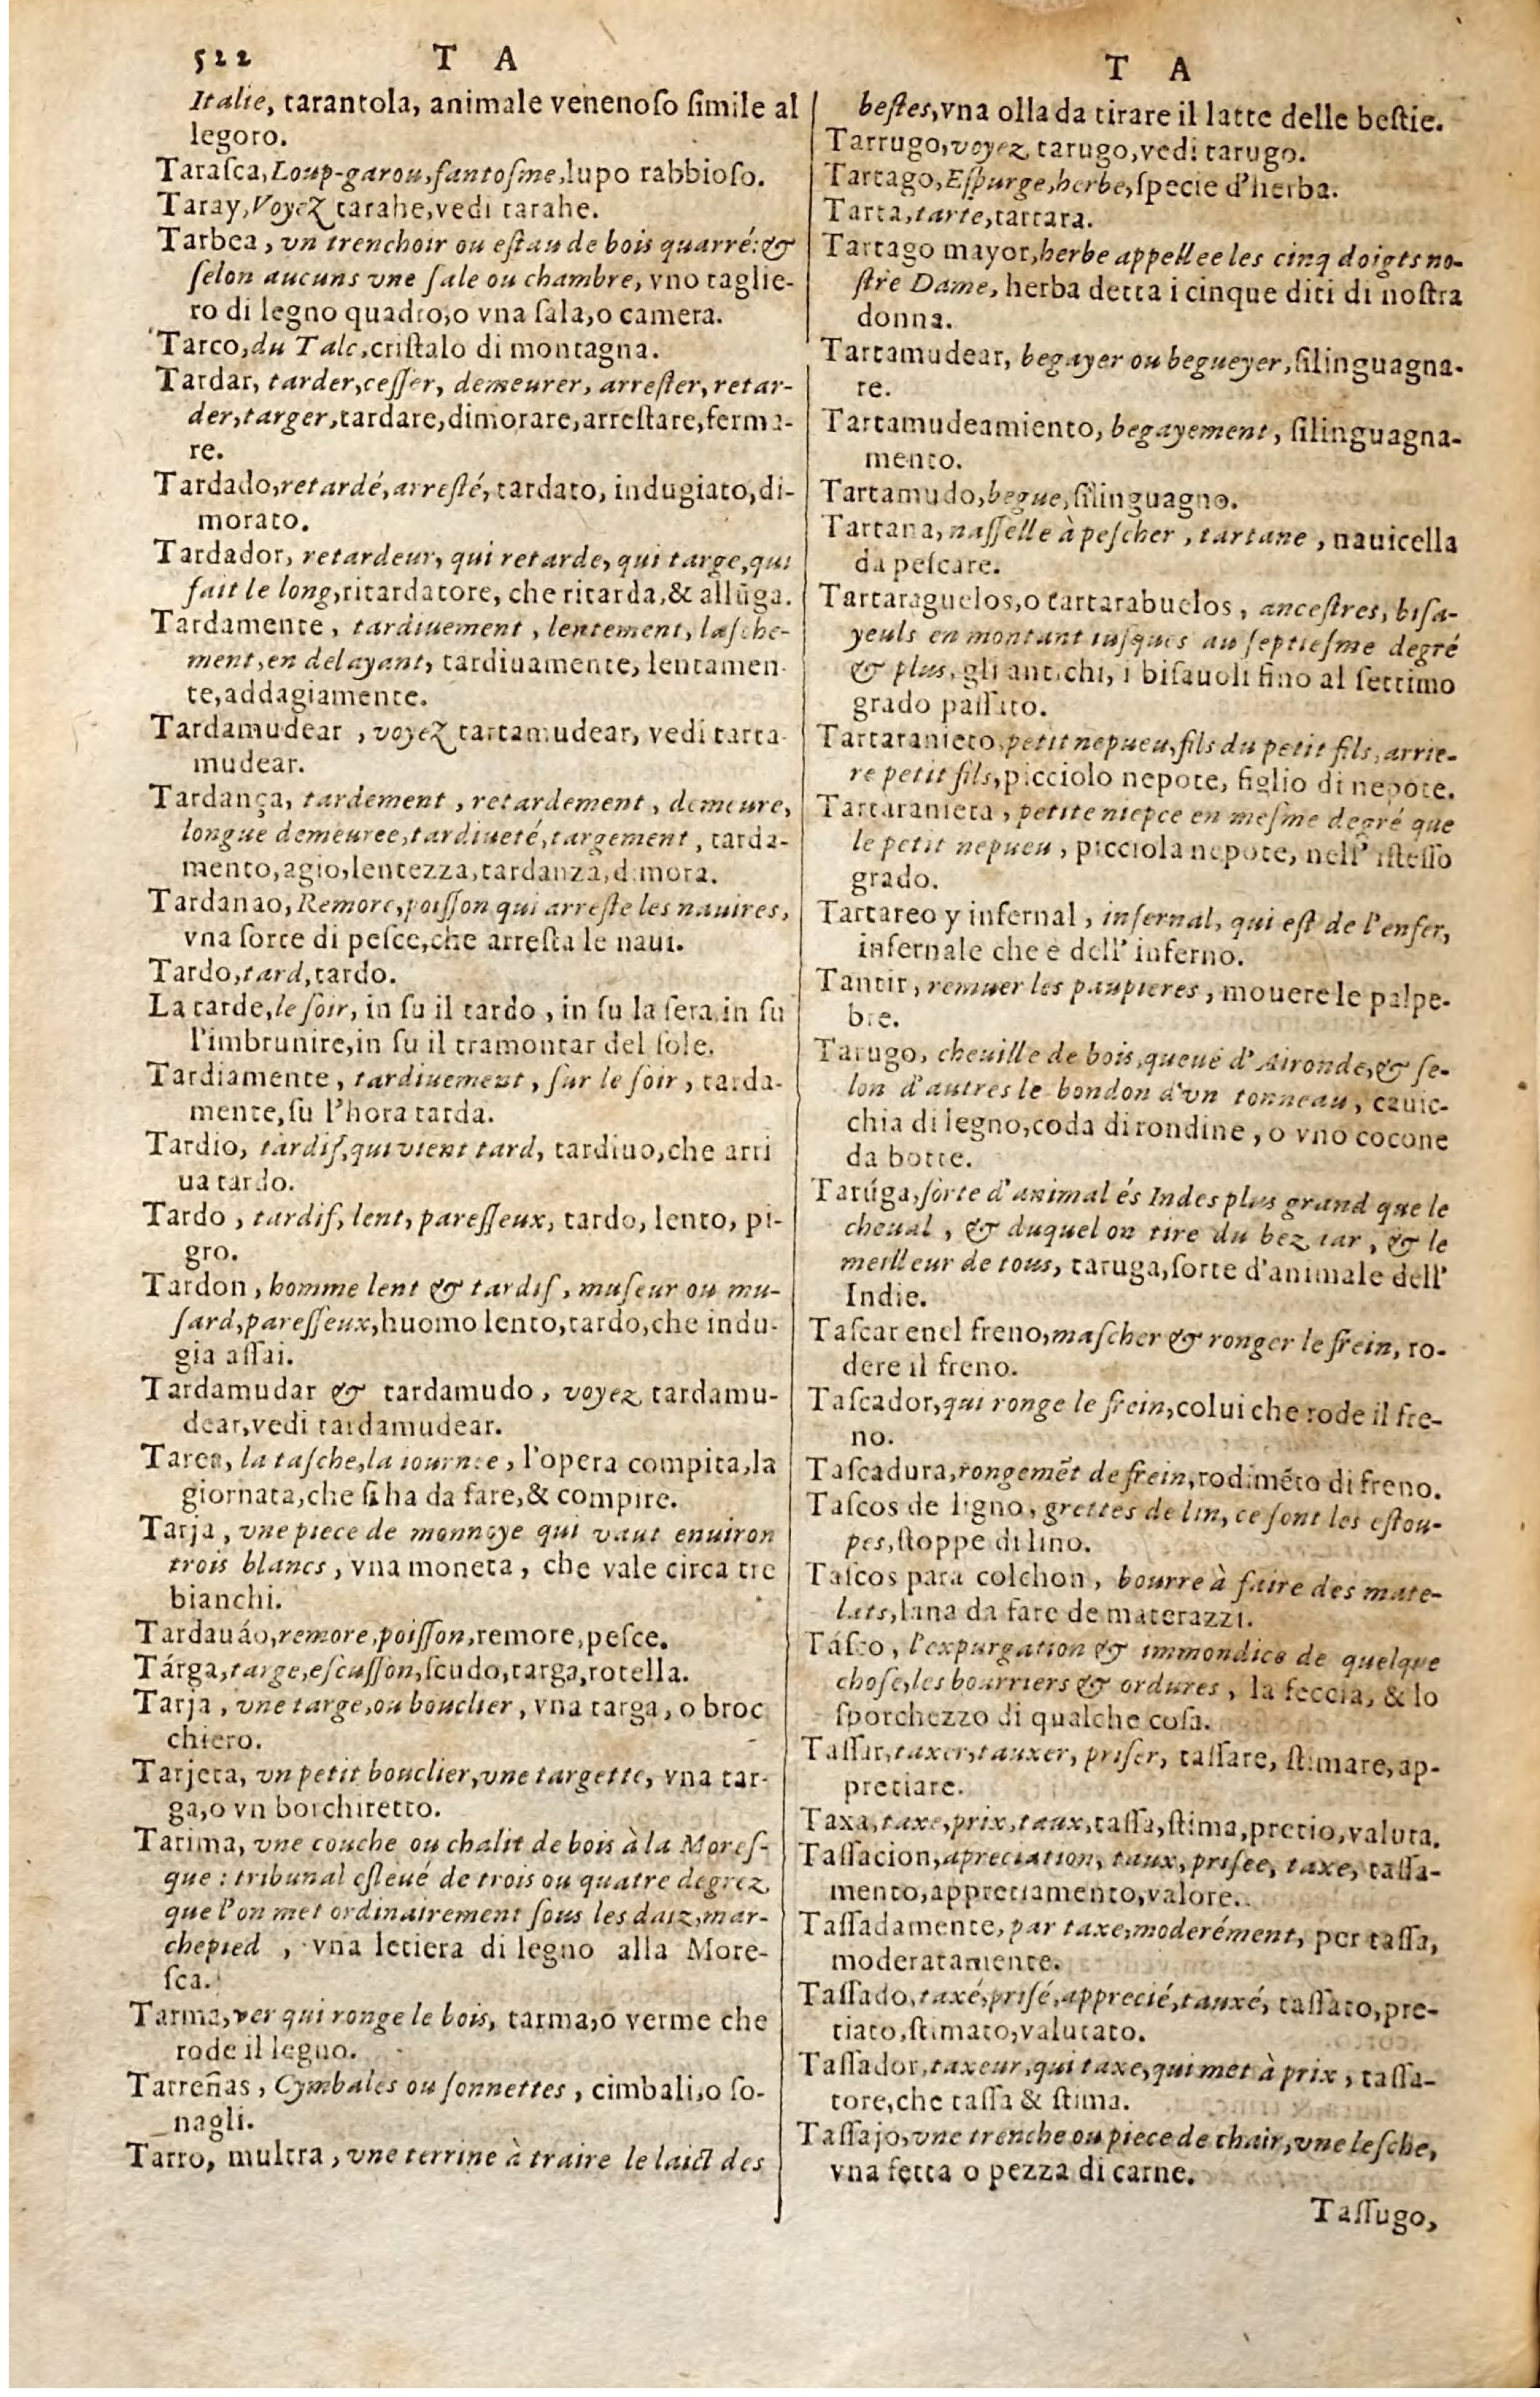 522 T A
Italie, tarantola, animale venenoſo ſimile al
legoro.
Taraſca, Loup-garou, fantoſme, lupo rabbioſo.
Taray, Voyez tarahe, vedi tarahe.
Tarbea, vn trenchoir ou eſtau de bois quarré: &
ſelon aucuns vne ſale ou chambre, vno taglie-
ro di legno quadro, o vna ſala, o camera.
Tarco, du Talc, criſtalo di montagna.
Tardar, tarder, ceſſer, demeurer, arreſter, retar-
der, targer, tardare, dimorare, arreſtare, ferma-
re.
Tardado, retardé, arreſté, tardato, indugiato, di-
morato.
Tardador, retardeur, qui retarde, qui targe, qui
fait le long, ritardatore, che ritarda, & allũga.
Tardamente, tardiuement, lentement, laſche-
ment, en delayant, tardiuamente, lentamen-
te, addagiamente.
Tardamudear, voyez tartamudear, vedi tarta-
mudear.
Tardança, tardement, retardement, demeure,
longue demeuree, tardiueté, targement, tarda-
mento, agio, lentezza, tardanza, dimora.
Tardanao, Remore, poiſſon qui arreſte les nauires,
vna ſorte di peſce, che arreſta le naui.
Tardo, tard, tardo.
La tarde, le ſoir, in ſu il tardo, in ſu la ſera, in ſu
l'imbrunire, in ſu il tramontar del ſole.
Tardiamente, tardiuement, ſur le ſoir, tarda-
mente, ſu l'hora tarda.
Tardio, tardif, qui vient tard, tardiuo, che arri
ua tardo.
Tardo, tardif, lent, pareſſeux, tardo, lento, pi-
gro.
Tardon, homme lent & tardif, muſeur ou mu-
ſard, pareſſeux, huomo lento, tardo, che indu-
gia aſſai.
Tardamudar & tardamudo, voyez tardamu-
dear, vedi tardamudear.
Tarea, la taſche, la iournee, l'opera compita, la
giornata, che ſi ha da fare, & compire.
Tarja, vne piece de monnoye qui vaut enuiron
trois blancs, vna moneta, che vale circa tre
bianchi.
Tardauáo, remore, poiſſon, remore, peſce.
Tárga, targe, eſcuſſon, ſcudo, targa, rotella.
Tarja, vne targe, ou bouclier, vna targa, o broc
chiero.
Tarjeta, vn petit bouclier, vne targette, vna tar-
ga, o vn borchiretto.
Tarima, vne couche ou chalit de bois à la Moreſ-
que: tribunal eſleué de trois ou quatre degrez
que l'on met ordinairement ſous les daiz, mar-
chepied, vna letiera di legno alla More-
ſca.
Tarma, ver qui ronge le bois, tarma, o verme che
rode il legno.
Tarreñas, Cymbales ou ſonnettes, cimbali, o ſo-
nagli.
Tarro, multra, vne terrine à traire le laict des
T A
beſtes, vna olla da tirare il latte delle beſtie.
Tarrugo, voyez tarugo, vedi tarugo.
Tartago, Eſpurge, herbe, ſpecie d'herba.
Tarta, tarte, tartara.
Tartago mayor, herbe appellee les cinq doigts no-
ſtre Dame, herba detta i cinque diti di noſtra
donna.
Tartamudear, begayer ou begueyer, ſilinguagna-
re.
Tartamudeamiento, begayement, ſilinguagna-
mento.
Tartamudo, begue, ſilinguagno.
Tartana, naſſelle à peſcher, tartane, nauicella
da peſcare.
Tartaraguelos, o tartarabuelos, anceſtres, biſa-
yeuls en montant iuſques au ſeptieſme degré
& plus, gli antichi, i biſauoli fino al ſettimo
grado paſſato.
Tartaranieto, petit nepueu, fils du petit fils, arrie-
re petit fils, picciolo nepote, figlio di nepote.
Tartaranieta, petite niepce en meſme degré que
le petit nepueu, picciola nepote, nell' iſteſſo
grado.
Tartareo y infernal, infernal, qui eſt de l'enfer,
infernale che e dell' inferno.
Tantir, remuer les paupieres, mouere le palpe-
bre.
Tarugo, cheuille de bois, queuë d'Aironde, & ſe-
lon d'autres le bondon d'vn tonneau, cauic-
chia di legno, coda di rondine, o vno cocone
da botte.
Tarúga, ſorte d'animal és Indes plus grand que le
cheual, & duquel on tire du beziar, & le
meilleur de tous, taruga, ſorte d'animale dell'
Indie.
Taſcar enel freno, maſcher & ronger le frein, ro-
dere il freno.
Taſcador, qui ronge le frein, colui che rode il fre-
no.
Taſcadura, rongemẽt de frein, rodimẽto di freno.
Taſcos de ligno, grettes de lin, ce ſont les eſtou-
pes, ſtoppe di lino.
Taſcos para colchon, bourre à faire des mate-
lats, lana da fare de materazzi.
Táſco, l'expurgation & immondice de quelque
choſe, les bourriers & ordures, la feccia, & lo
ſporchezzo di qualche coſa.
Taſſar, taxer, tauxer, priſer, taſſare, ſtimare, ap-
pretiare.
Taxa, taxe, prix, taux, taſſa, ſtima, pretio, valuta.
Taſſacion, apreciation, taux, priſee, taxe, taſſa-
mento, appretiamento, valore.
Taſſadamente, par taxe, moderément, per taſſa,
moderatamente.
Taſſado, taxé, priſé, apprecié, tauxé, taſſato, pre-
tiato, ſtimato, valutato.
Taſſador, taxeur, qui taxe, qui met à prix, taſſa-
tore, che taſſa & ſtima.
Taſſajo, vne trenche ou piece de chair, vne leſche,
vna fetta o pezza di carne.
Taſſugo,